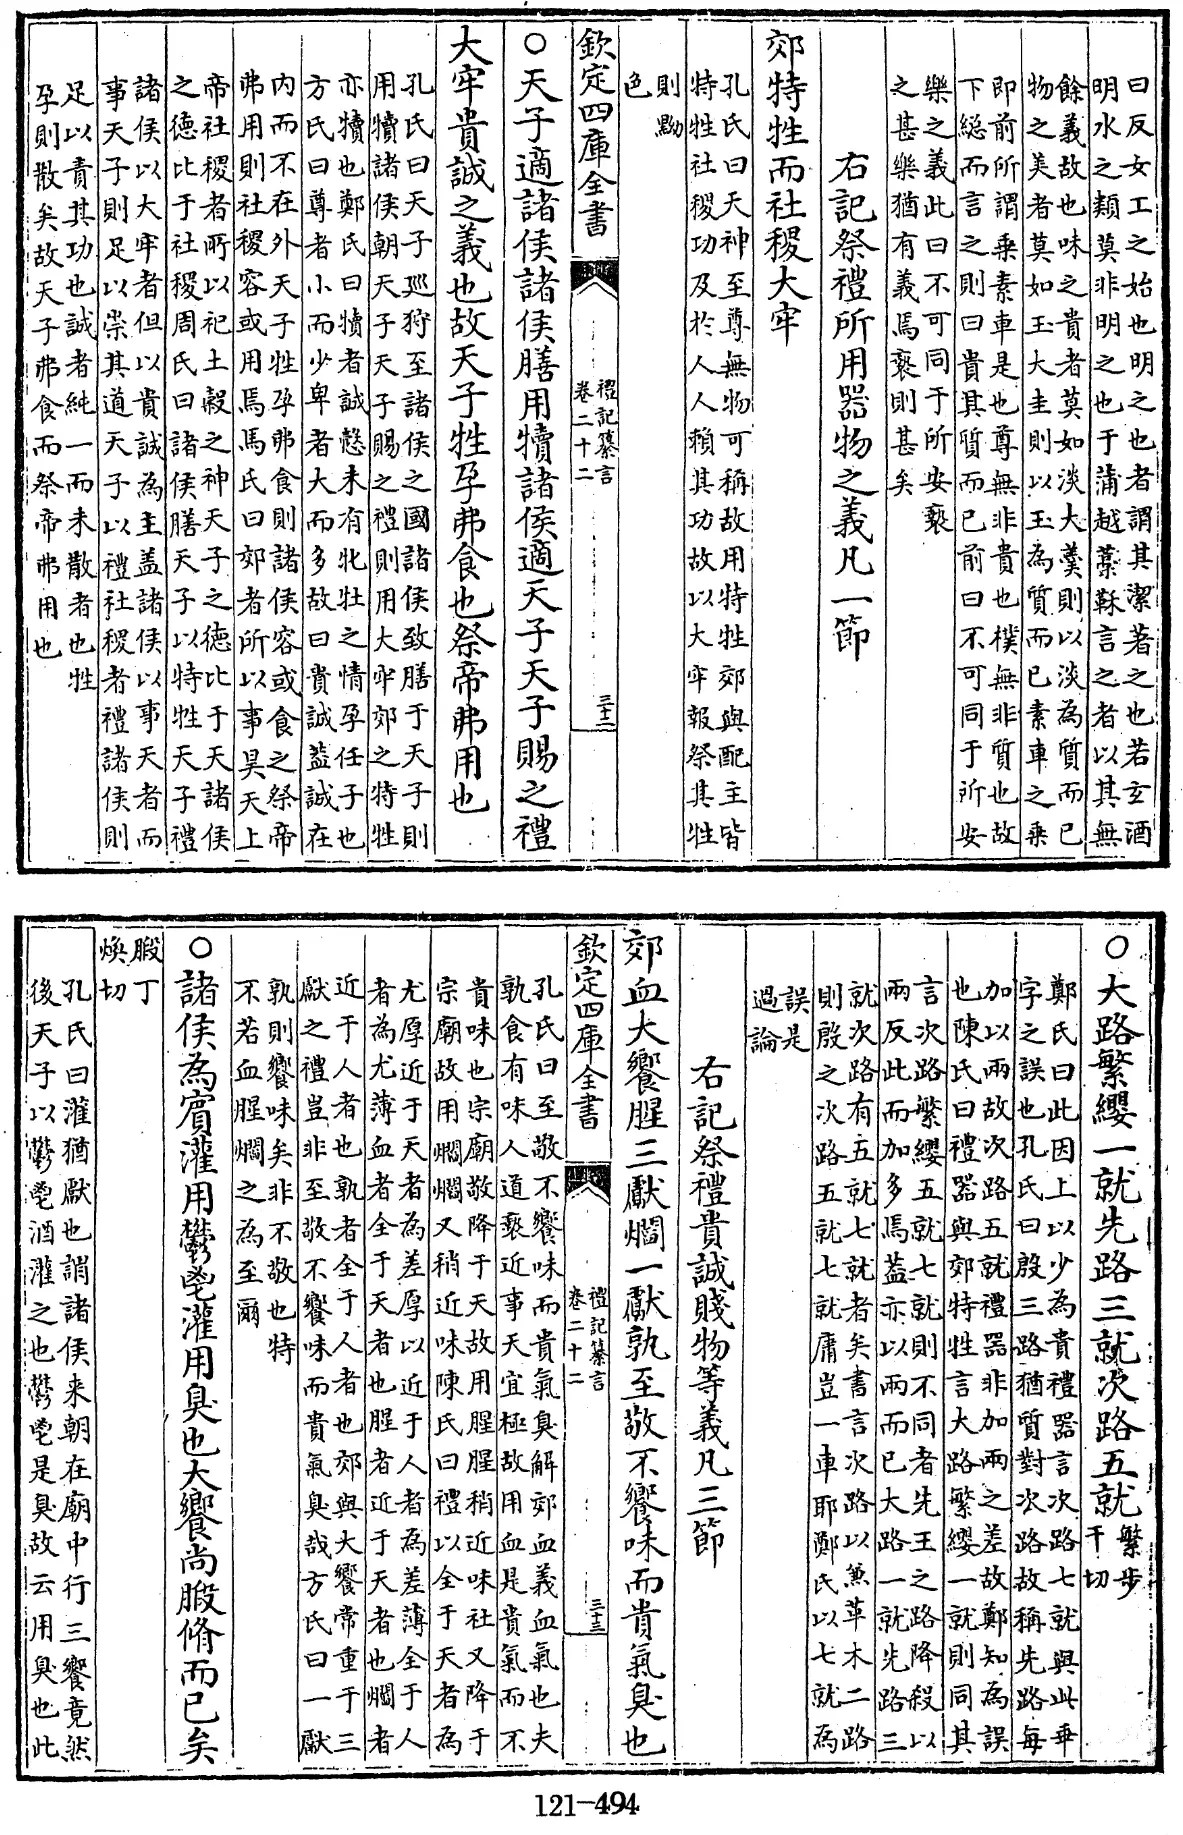 曰反女工之始也明之也者謂其潔著之也若玄酒
明水之類莫非明之也于蒲越藁鞂言之者以其無
餘義故也味之貴者莫如淡大羹則以淡為質而已
物之美者莫如玉大圭則以玉為質而已素車之乗
即前所謂乗素車是也尊無非貴也樸無非質也故
下緫而言之則曰貴其質而已前曰不可同于所安
樂之義此曰不可同于所安䙝
之甚樂猶有義焉䙝則甚矣
右記祭禮所用器物之義凡一節
郊特牲而社稷大牢
孔氏曰天神至尊無物可稱故用特牲郊與配主皆
特牲社稷功及於人人賴其功故以大牢報祭其牲
則黝
色
欽定四庫全書
禮記纂言
卷二十二
三十二
○天子適諸侯諸侯膳用犢諸侯適天子天子賜之禮
大牢貴誠之義也故天子牲孕弗食也祭帝弗用也
孔氏曰天子廵狩至諸侯之國諸侯致膳于天子則
用犢諸侯朝天子天子賜之禮則用大牢郊之特牲
亦犢也鄭氏曰犢者誠慤未有牝牡之情孕任子也
方氏曰尊者小而少卑者大而多故曰貴誠葢誠在
内而不在外天子牲孕弗食則諸侯容或食之祭帝
弗用則社稷容或用焉馬氏曰郊者所以事昊天上
帝社稷者所以祀土糓之神天子之徳比于天諸侯
之徳比于社稷周氏曰諸侯膳天子以特牲天子禮
諸侯以大牢者但以貴誠為主葢諸侯以事天者而
事天子則足以崇其道天子以禮社稷者禮諸侯則
足以責其功也誠者純一而未散者也牲
孕則散矣故天子弗食而祭帝弗用也
○大路繁纓一就先路三就次路五就
繁步
干切
鄭氏曰此因上以少為貴禮器言次路七就與此乖
字之誤也孔氏曰殷三路猶質對次路故稱先路每
加以兩故次路五就禮器非加兩之差故鄭知為誤
也陳氏曰禮器與郊特牲言大路繁纓一就則同其
言次路繁纓五就七就則不同者先王之路降殺以
兩反此而加多焉葢亦以兩而已大路一就先路三
就次路有五就七就者矣書言次路以兼革木二路
則殷之次路五就七就庸豈一車耶鄭氏以七就為
誤是
過論
右記祭禮貴誠賤物等義凡三節
郊血大饗腥三獻爓一獻孰至敬不饗味而貴氣臭也
欽定四庫全書
禮記纂言
卷二十二
三十三
孔氏曰至敬不饗味而貴氣臭解郊血義血氣也夫
孰食有味人道䙝近事天宜極故用血是貴氣而不
貴味也宗廟敬降于天故用腥腥稍近味社又降于
宗廟故用爓爓又稍近味陳氏曰禮以全于天者為
尤厚近于天者為差厚以近于人者為差薄全于人
者為尤薄血者全于天者也腥者近于天者也爓者
近于人者也孰者全于人者也郊與大饗常重于三
獻之禮豈非至敬不饗味而貴氣臭哉方氏曰一獻
孰則饗味矣非不敬也特
不若血腥爓之為至爾
○諸侯為賓灌用鬱鬯灌用臭也大饗尚腶脩而已矣
腶丁
煥切
孔氏曰灌猶獻也謂諸侯来朝在廟中行三饗竟然
後天子以鬱鬯酒灌之也鬱鬯是臭故云用臭也此
121-494